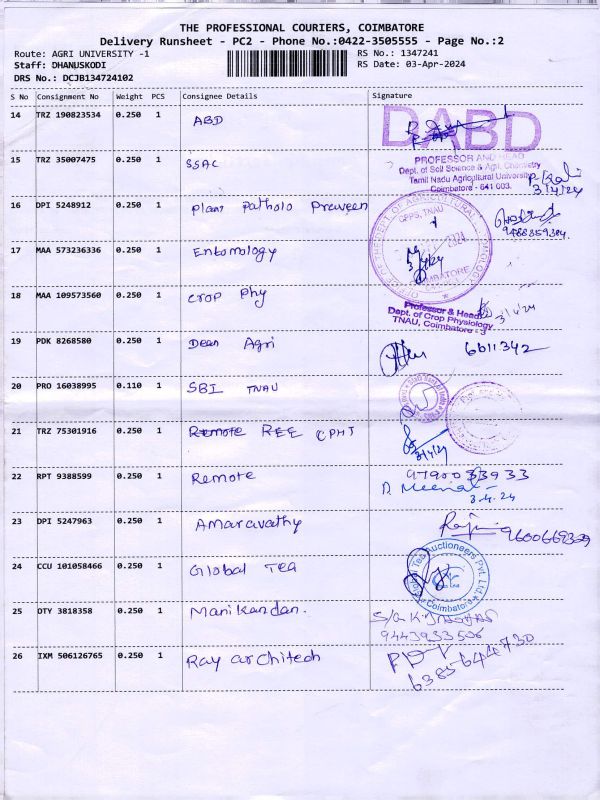 THE PROFESSIONAL COURIERS, COIMBATORE
Delivery Runsheet - PC2 - Phone No.:0422-3505555 - Page No.:2
Route: AGRI UNIVERSITY -1 RS No.: 1347241
Staff: DHANUSKODI RS Date: 03-Apr-2024
DRS No.: DCJB134724102
S No Consignment No Weight PCS Consignee Details Signature
14 TRZ 190823534 0.250 1 ABD DABD
15 TRZ 35007475 0.250 1 SSAC
PROFESSOR AND HEAD
Dept. of Soil Science & Agrl. Chemistry
Tamil Nadu Agricultural University
Coimbatore - 641 003.
3/4/24
16 DPI 5248912 0.250 1 Plant Patholo Praveen
CPPS, TNAU
9488359304
17 MAA 573236336 0.250 1 Entomology
3/4/24
COIMBATORE
18 MAA 109573560 0.250 1 Crop Phy
Professor & Head
Dept. of Crop Physiology
TNAU, Coimbatore - 3
3/4/24
19 PDK 8268580 0.250 1 Dean Agri 6611342
20 PRO 16038995 0.110 1 SBI TNAU
21 TRZ 75301916 0.250 1 Remote REE CPHT
3/4/24
22 RPT 9388599 0.250 1 Remote 9790033933
D. Meena
3.4.24
23 DPI 5247963 0.250 1 Amaravathy
24 CCU 101058466 0.250 1 Global Tea
Tea Auctioneers Pvt. Ltd.
Coimbatore
25 OTY 3818358 0.250 1 Manikandan.
9443933506
26 IXM 506126765 0.250 1 Ray architech
6385644730